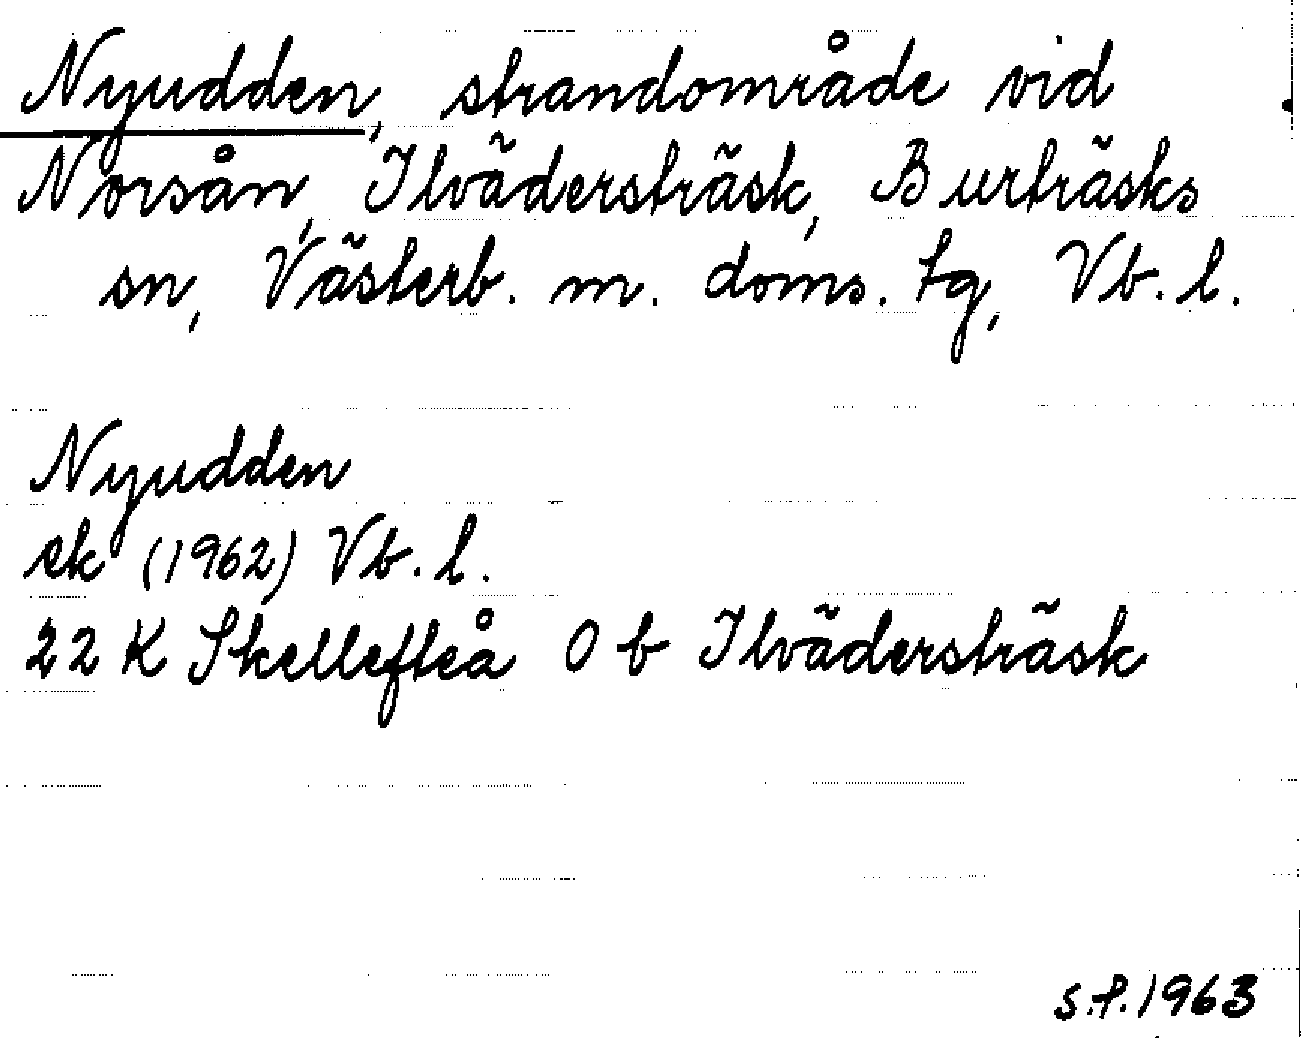 Nyudden, strandområde vid
Norsån, Ilvädersträsk, Burträsks
sn, Västerb. m. doms. tg, Vb. l.
Nyudden
ek (1962) Vb. l.
22 K Skellefteå 0 b Ilvädersträsk
s.f. 1963